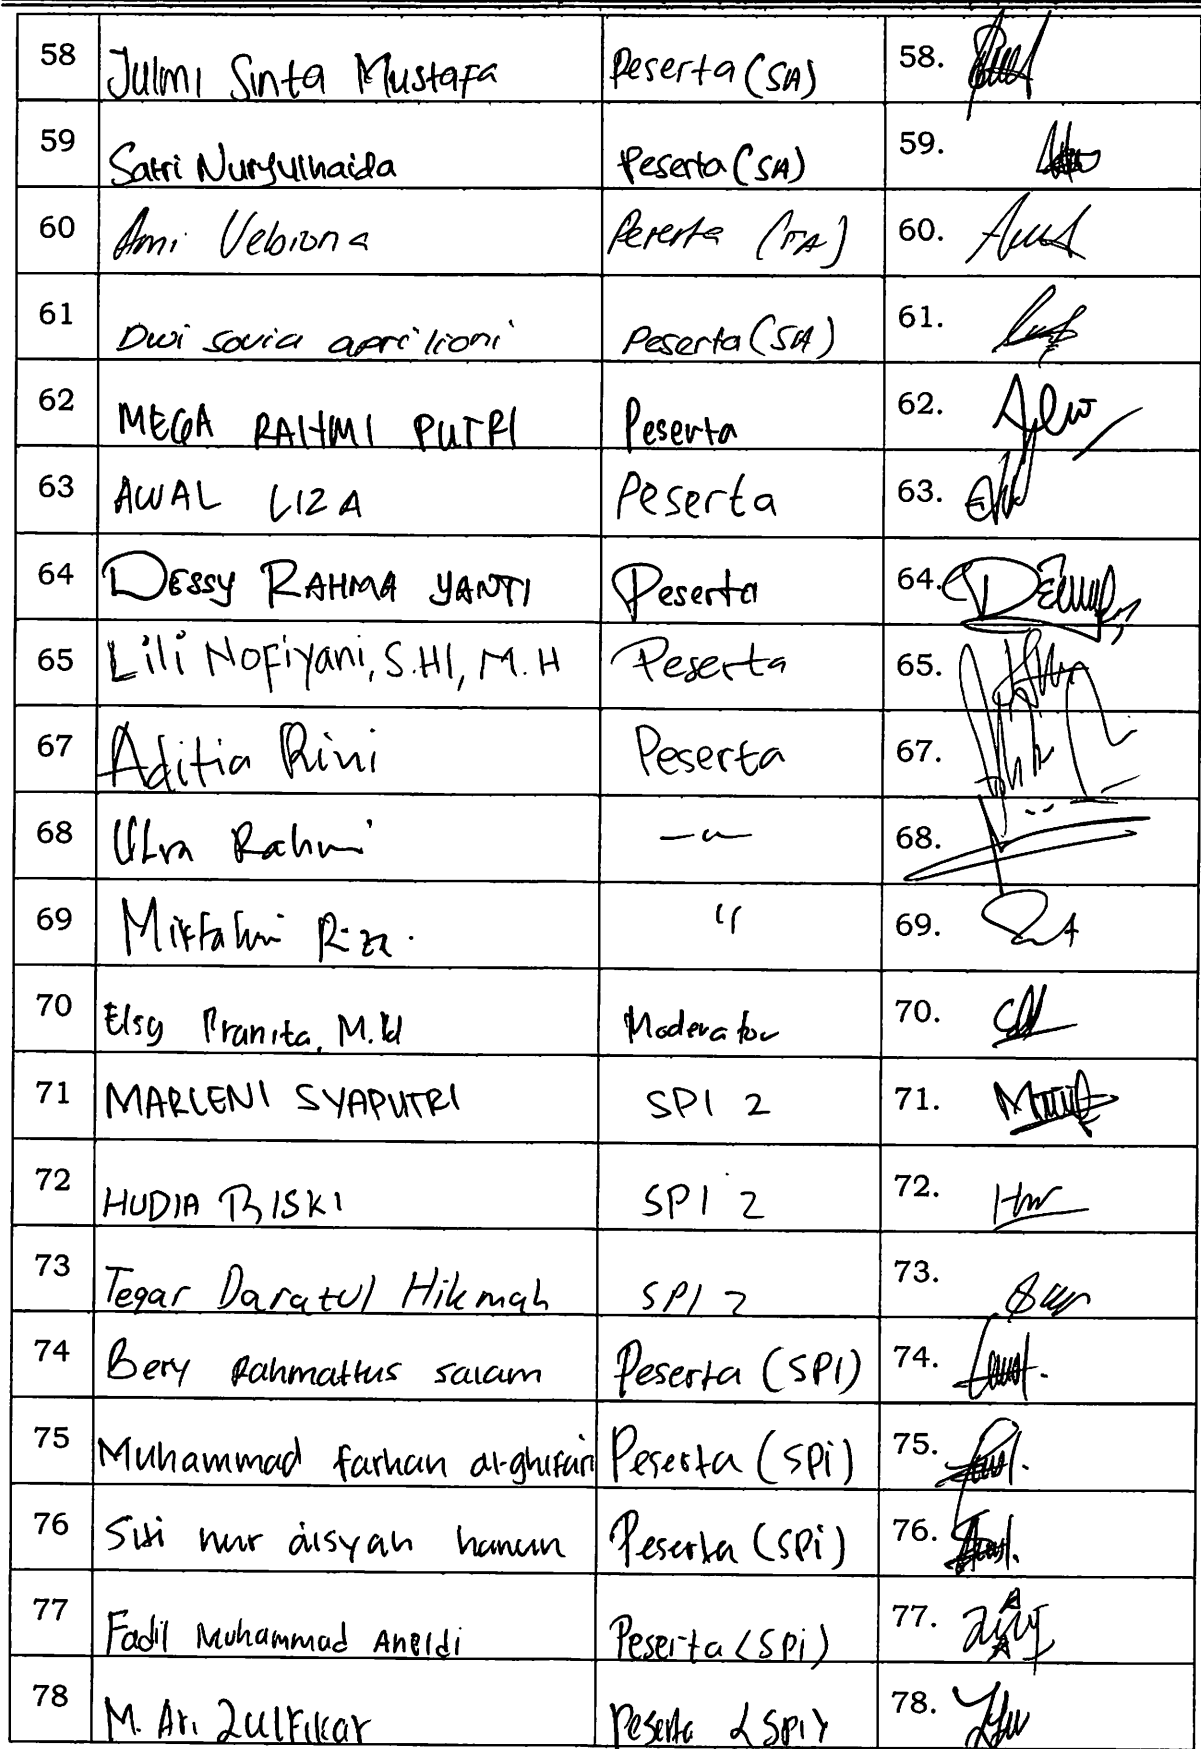 58 Julmi Sinta Mustafa Peserta (SIA) 58.
59 Satri Nuryulhaida Peserta (SIA) 59.
60 Ami Vebiona Peserta 60.
61 Dwi sovia aprilioni Peserta (SIA) 61.
62 MEGA RAHMI PUTRI Peserta 62.
63 AWAL LIZA Peserta 63.
64 DESSY RAHMA YANTI Peserta 64.
65 Lili Nofiyani, S.HI, M.H Peserta 65.
67 Aditia Rini Peserta 67.
68 Rahmi 68.
69 Miftahu Riza. " 69.
70 Elsy Pranita, M.Pd Moderator 70.
71 MARLENI SYAPUTRI SPI 2 71.
72 HUDIA RISKI SPI 2 72.
73 Tegar Daratul Hikmah SPI 2 73.
74 Bery Rahmattus salam Peserta (SPI) 74.
75 Muhammad farhan al-ghifari Peserta (SPi) 75.
76 Siti nur aisyah hanun Peserta (SPi) 76.
77 Fadil Muhammad Aneldi Peserta (SPi) 77.
78 M. Ari Zulfikar Peserta (SPI) 78.